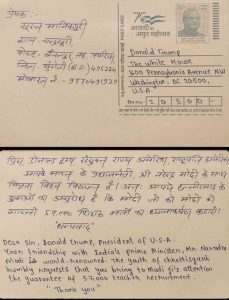 प्रेषक :-
सूरज मानिकपुरी
ग्राम चन्द्रपुरी
जिला मुंगेली (छ.ग.) 495334
75
आज़ादी का
अमृत महोत्सव
Donald Trump
The White House
1600 Pennsylvania Avenue NW
Washington, DC 20500,
U.S.A.
20500
प्रिय डोनाल्ड ट्रम्प संयुक्त राज्य अमेरिका राष्ट्रपति
आपके भारत के प्रधानमंत्री, श्री नरेन्द्र मोदी के साथ
मित्रता विश्व विख्यात है। अतः आपसे छत्तीसगढ़ के
युवाओं का अनुरोध है कि मोदी जी को मोदी की
गारन्टी 57,000 शिक्षक भर्ती का ध्यानाकर्षण करायें।
"धन्यवाद"
Dear Sir, Donald Trump, President of U.S.A.
Your Friendship with India's prime Minister, Mr. Narendra
Modi is world-renowned. The youth of chhattisgarh
humbly requests that you bring to Modi ji's attention
the guarantee of 57,000 teacher recruitment.
"Thank you"